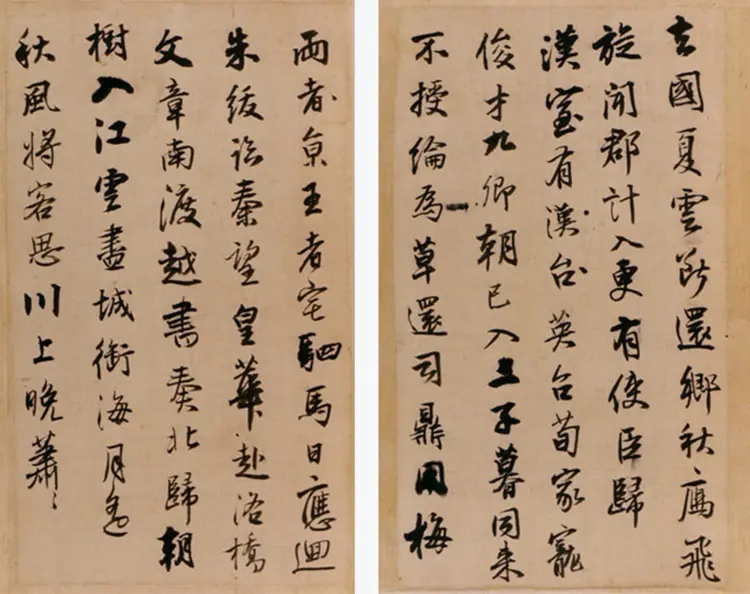 去國夏雲断還鄉秋鴈飛
旋闻郡計入更有使臣歸
漢室有漢台英台荀家寵
俊才九卿朝已入三子暮同来
不授綸為草還司鼎用梅
两者京王者宅駟馬日應迴
朱绂临秦望皇華赴洛橋
文章南渡越書奏北歸朝
樹入江雲盡城銜海月遥
秋風將客思川上晚蕭〻